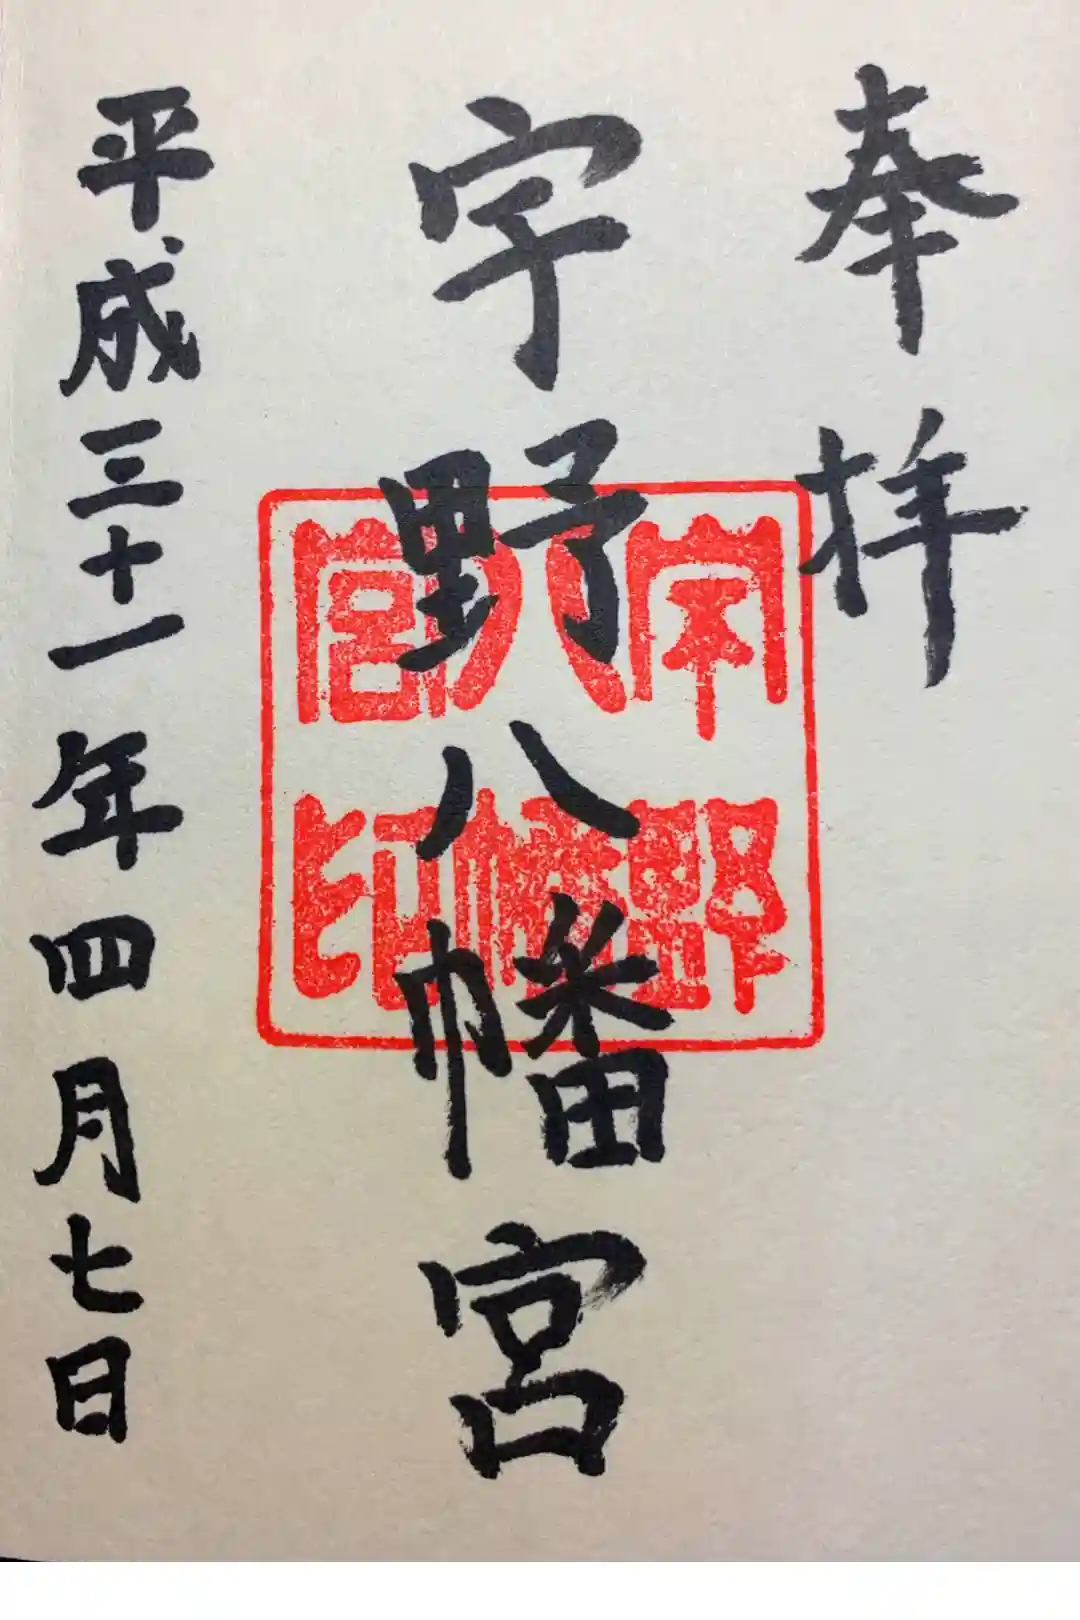 奉拝
宇野八幡宮
平成三十一年四月七日
宇野
八幡
宮印